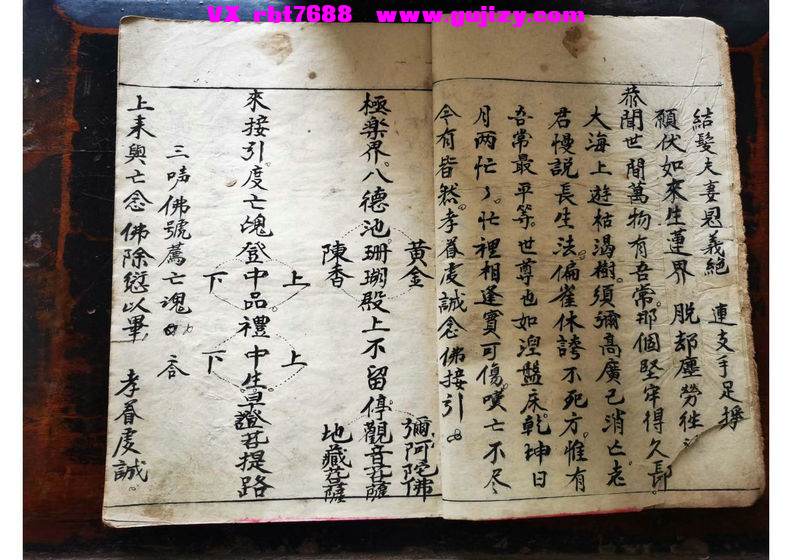 VX rbt7688 www.gujizy.com
結髮夫妻恩義絕 連支手足捧
願伏如來生蓮界 脫却塵勞往
恭聞世間萬物有吾常那個堅牢得久長
大海上遊枯渴樹須彌高廣已消亡老
君慢説長生法偏雀休誇不死方惟有
吾常最平等世尊也如湼盤床乾坤日
月兩忙々忙裡相逢實可傷嘆亡不尽
今有皆然孝眷虔誠念佛接引
黃金 彌阿陀佛
極楽界八德池珊瑚殿上不留停觀音菩薩
陳香 地藏菩薩
上 上
來接引度亡魂登中品禮中生早證菩提路
下 下
三唪佛號薦亡魂 答
上来與亡念佛除愆以畢 孝眷虔誠